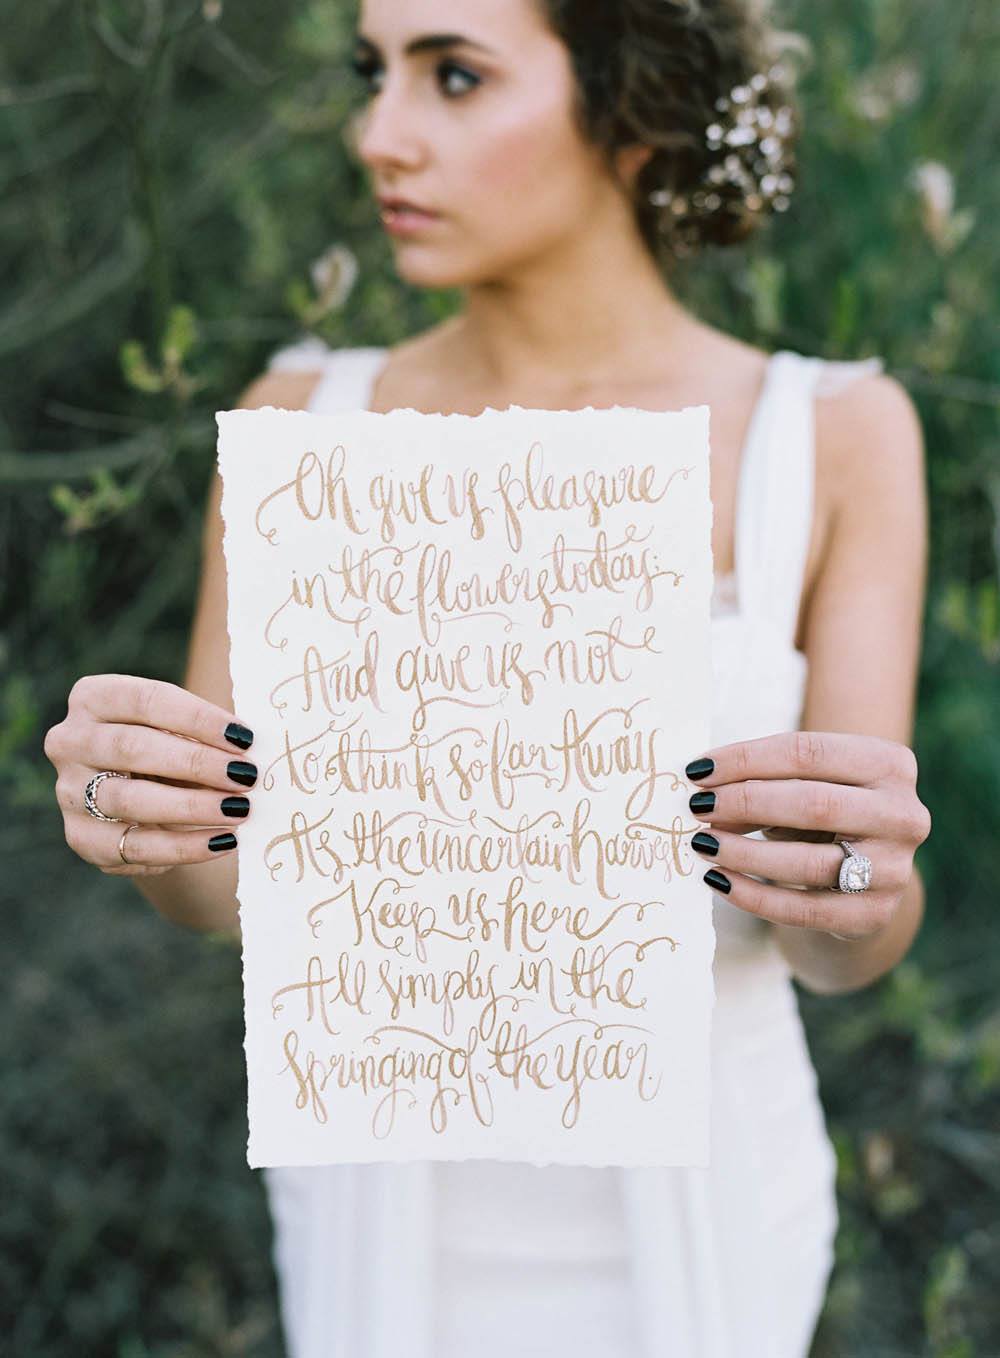 Oh, give us pleasure
in the flowers today;
And give us not
to think so far Away
As the uncertain harvest;
Keep us here
All simply in the
Springing of the year.